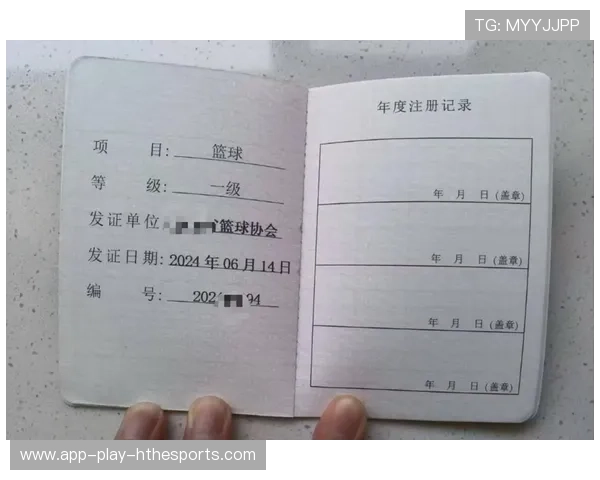 TG: MYYJJPP
项 目: 篮球
等 级: 一级
发证单位 篮球协会
发证日期: 2024 年 06 月 14 日
编 号: 202 94
年度注册记录
年 月 日 (盖章)
年 月 日 (盖章)
年 月 日 (盖章)
年 月 日 (盖章)
www-app-play-hthesports.com